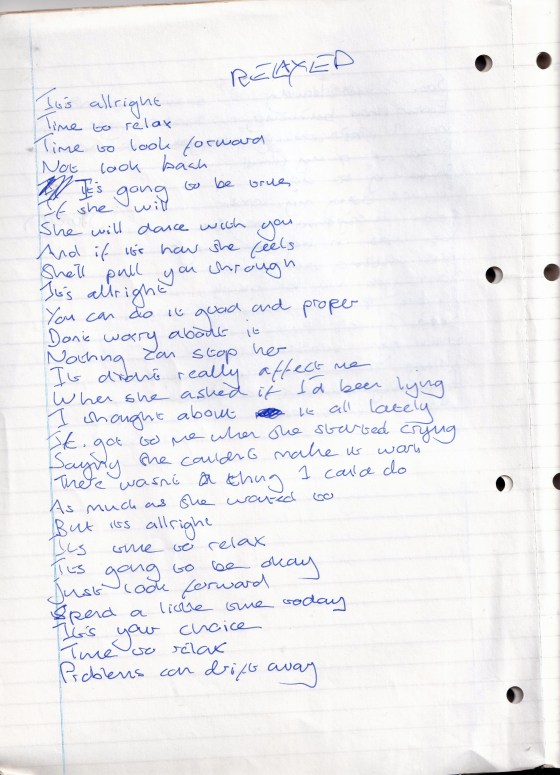 RELAXED
It's allright
Time to relax
Time to look forward
Not look back
It's going to be true
If she will
She will dance with you
And if it's how she feels
She'll pull you through
It's allright
You can do it good and proper
Don't worry about it
Nothing can stop her
It didn't really affect me
When she asked if I'd been lying
I thought about it all lately
It got to me when she started crying
Saying she couldn't make it work
There wasn't a thing I could do
As much as she wanted to
But it's allright
It's time to relax
It's going to be okay
Just look forward
Spend a little time today
It's your choice
Time to relax
Problems can drift away